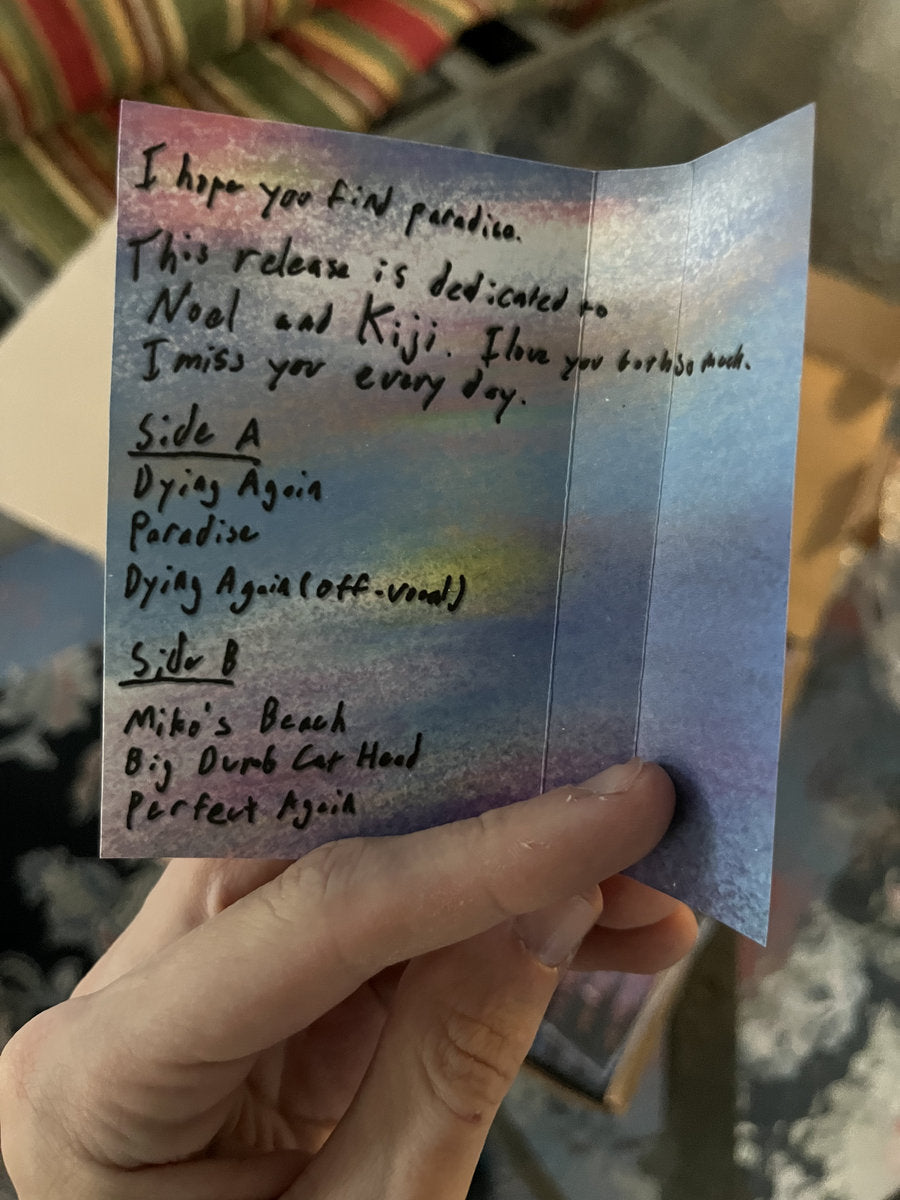 I hope you find paradise.
This release is dedicated to
Noel and Kiji. I love you both so much.
I miss you every day.
Side A
Dying Again
Paradise
Dying Again (off-vocal)
Side B
Miko's Beach
Big Dumb Cat Head
Perfect Again